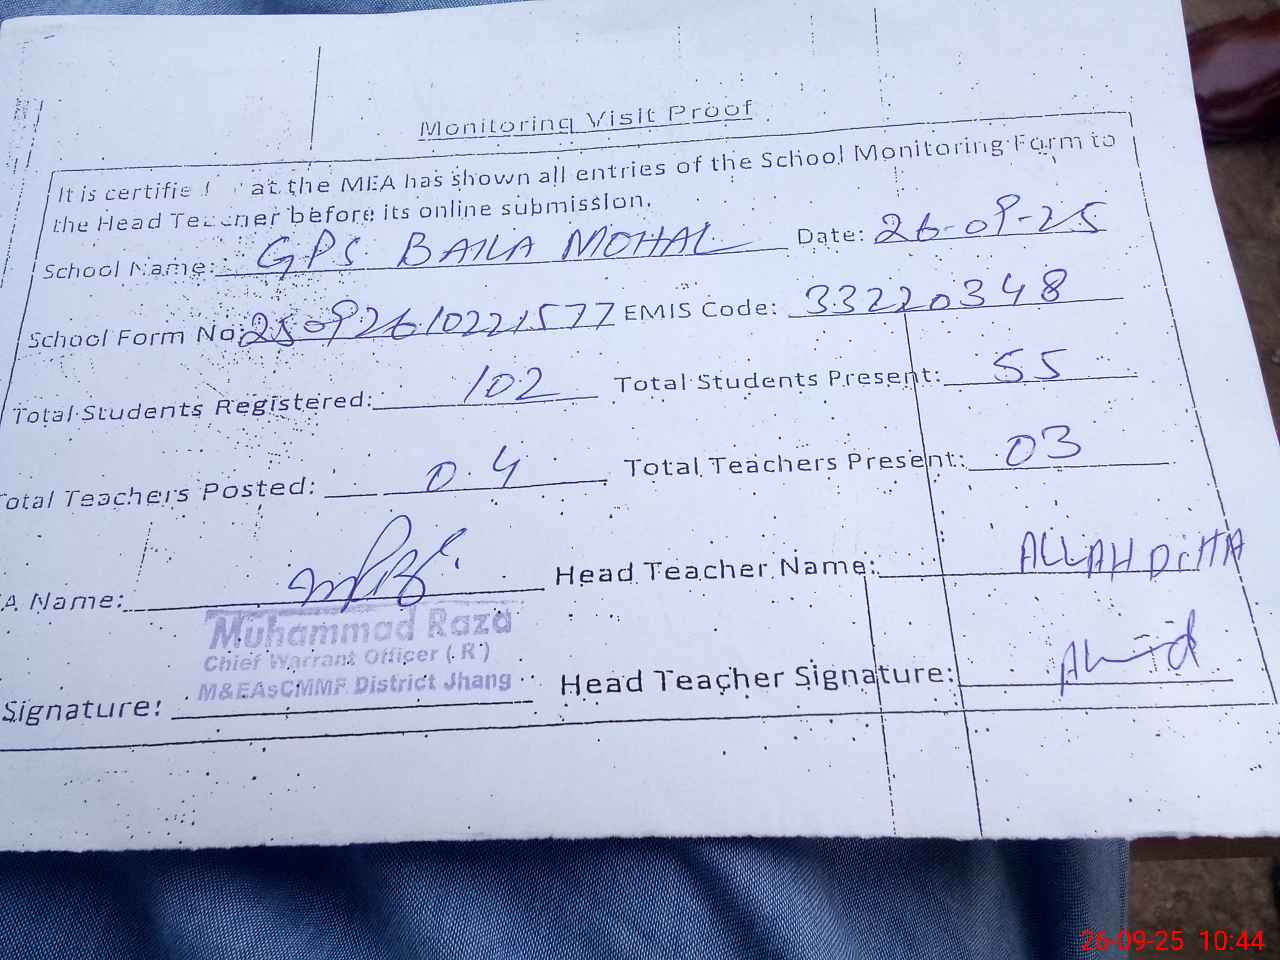 Monitoring Visit Proof
It is certified that the MEA has shown all entries of the School Monitoring Form to
the Head Teacher before its online submission.
School Name: GPS BAILA MOHAL Date: 26-09-25
School Form No: 25092610221577 EMIS Code: 33220348
Total Students Registered: 102 Total Students Present: 55
Total Teachers Posted: 04 Total Teachers Present: 03
A Name: Head Teacher Name: ALLAH DITTA
Muhammad Raza
Chief Warrant Officer (R)
M&EAsCMMF District Jhang
Signature: Head Teacher Signature:
26-09-25 10:44